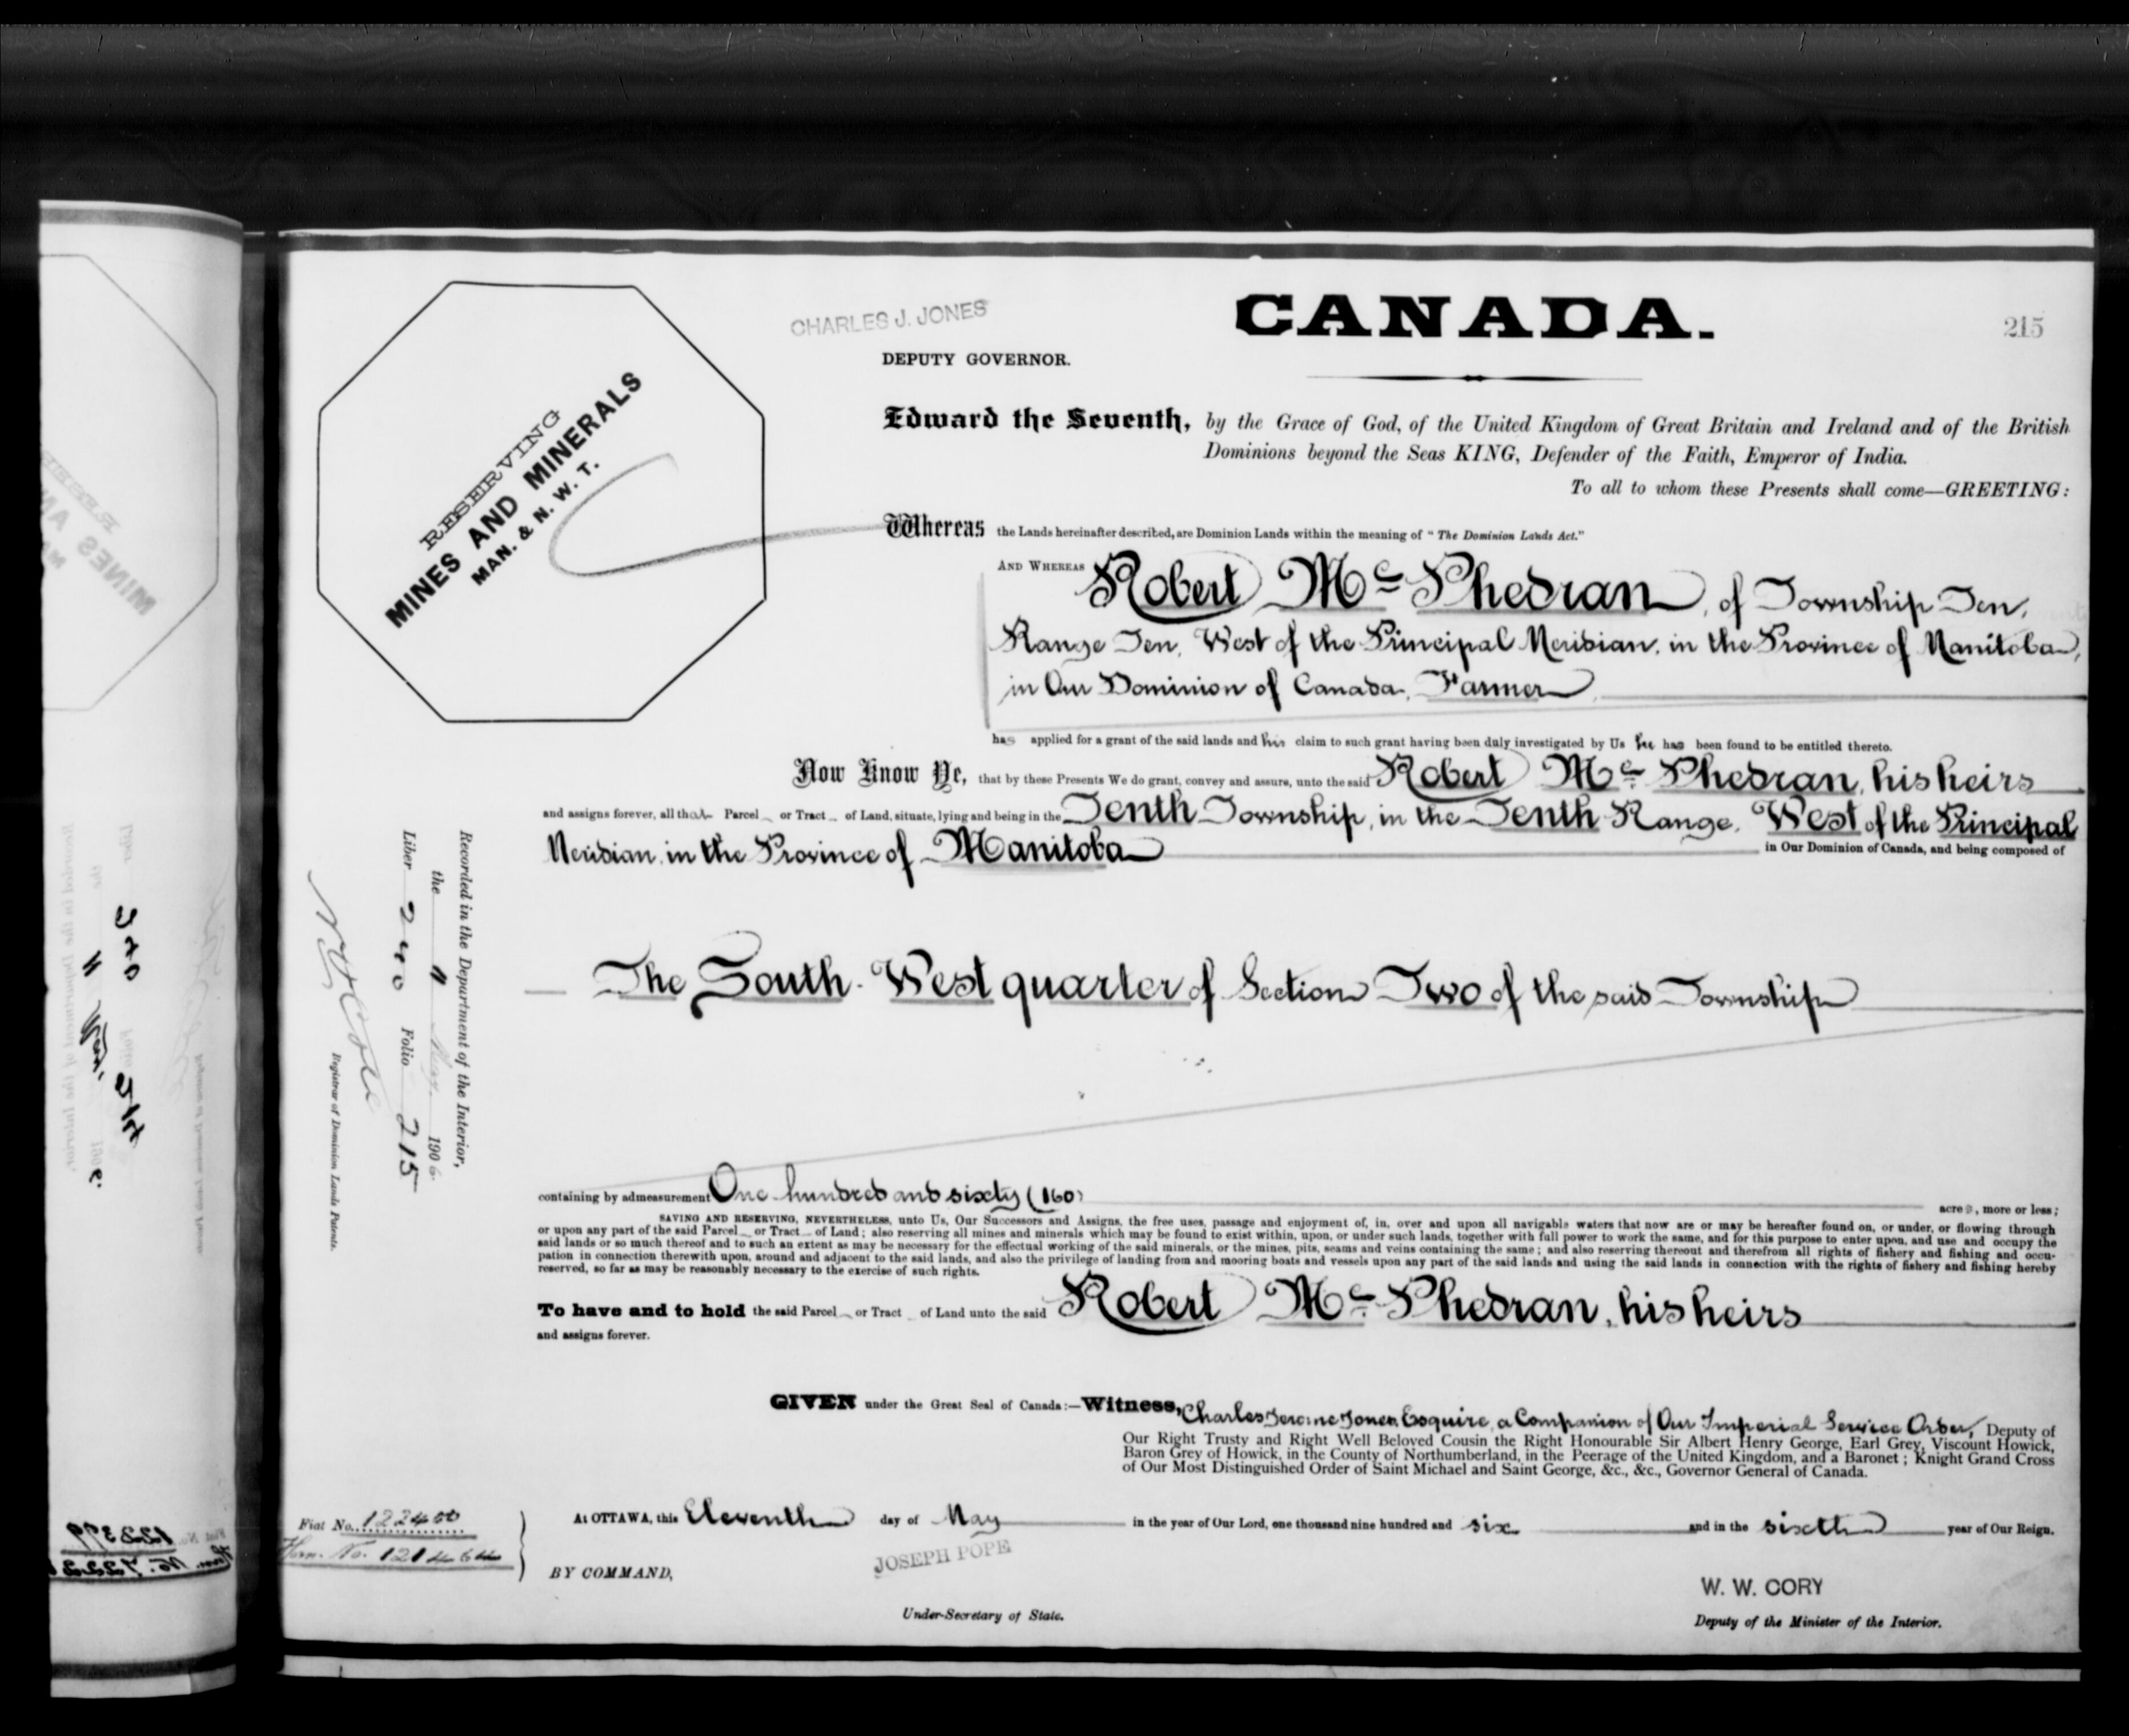 CHARLES J. JONES
DEPUTY GOVERNOR.
CANADA.
215
RESERVING
MINES AND MINERALS
MAN. & N. W. T.
Edward the Seventh, by the Grace of God, of the United Kingdom of Great Britain and Ireland and of the British
Dominions beyond the Seas KING, Defender of the Faith, Emperor of India.
To all to whom these Presents shall come—GREETING:
Whereas the Lands hereinafter described, are Dominion Lands within the meaning of "The Dominion Lands Act."
AND WHEREAS Robert Mc Phedran, of Township Ten,
Range Ten, West of the Principal Meridian, in the Province of Manitoba,
in Our Dominion of Canada, Farmer
has applied for a grant of the said lands and his claim to such grant having been duly investigated by Us he has been found to be entitled thereto.
Now Know Ye, that by these Presents We do grant, convey and assure, unto the said Robert Mc Phedran, his heirs
and assigns forever, all that Parcel or Tract of Land, situate, lying and being in the Tenth Township, in the Tenth Range, West of the Principal
Meridian, in the Province of Manitoba in Our Dominion of Canada, and being composed of
The South-West quarter of Section Two of the said Township
containing by admeasurement One hundred and sixty (160) acres, more or less;
SAVING AND RESERVING, NEVERTHELESS, unto Us, Our Successors and Assigns, the free uses, passage and enjoyment of, in, over and upon all navigable waters that now are or may be hereafter found on, or under, or flowing through
or upon any part of the said Parcel or Tract of Land; also reserving all mines and minerals which may be found to exist within, upon, or under such lands, together with full power to work the same, and for this purpose to enter upon, and use and occupy the
said lands or so much thereof and to such an extent as may be necessary for the effectual working of the said minerals, or the mines, pits, seams and veins containing the same; and also reserving thereout and therefrom all rights of fishery and fishing and occu-
pation in connection therewith upon, around and adjacent to the said lands, and also the privilege of landing from and mooring boats and vessels upon any part of the said lands and using the said lands in connection with the rights of fishery and fishing hereby
reserved, so far as may be reasonably necessary to the exercise of such rights.
To have and to hold the said Parcel or Tract of Land unto the said Robert Mc Phedran, his heirs
and assigns forever.
GIVEN under the Great Seal of Canada:—Witness, Charles Jerome Jones, Esquire, a Companion of Our Imperial Service Order, Deputy of
Our Right Trusty and Right Well Beloved Cousin the Right Honourable Sir Albert Henry George, Earl Grey, Viscount Howick,
Baron Grey of Howick, in the County of Northumberland, in the Peerage of the United Kingdom, and a Baronet; Knight Grand Cross
of Our Most Distinguished Order of Saint Michael and Saint George, &c., &c., Governor General of Canada.
At OTTAWA, this Eleventh day of May in the year of Our Lord, one thousand nine hundred and six and in the sixth year of Our Reign.
BY COMMAND,
JOSEPH POPE
Under-Secretary of State.
W. W. CORY
Deputy of the Minister of the Interior.
Fiat No. 122400
Hom. No. 121464
Recorded in the Department of the Interior,
the 11 May 1906
Liber 240 Folio 215
Registrar of Dominion Lands Patents.